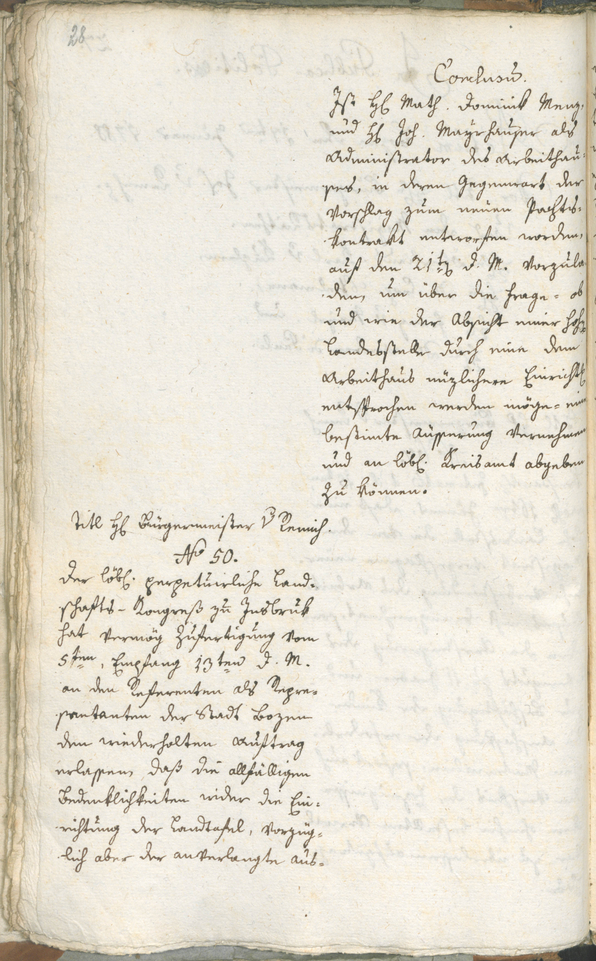 28
Conclusum.
Ist H. Math. Dominik Menz,
und H. Joh. Mayrhauser als
Administrator des Arbeithau-
ses, in deren Gegenwart der
Vorschlag zum neuen Pachts-
kontrakt entworfen worden,
auf den 21t. d. M. vorzula-
den, um über die Frage = ob
und wie der Absicht einer hohen
Landesstelle durch eine dem
Arbeithaus nüzlichere Einricht.
entsprochen werden möge = eine
bestimte Äusserung vernehmen
und an löbl. Kreisamt abgeben
zu können.
Titl H. Bürgermeister v Remich.
No 50.
Der löbl. perpetuirliche Land-
schafts-Kongreß zu Insbruk
hat vermög Zufertigung vom
5ten, Empfang 13ten d. M.
an den Referenten als Repre-
sentanten der Stadt Bozen
den wiederholten Auftrag
erlassen, daß die allfälligen
Bedenklichkeiten wider die Ein-
richtung der Landtafel, vorzüg-
lich aber der anverlangte Aus-